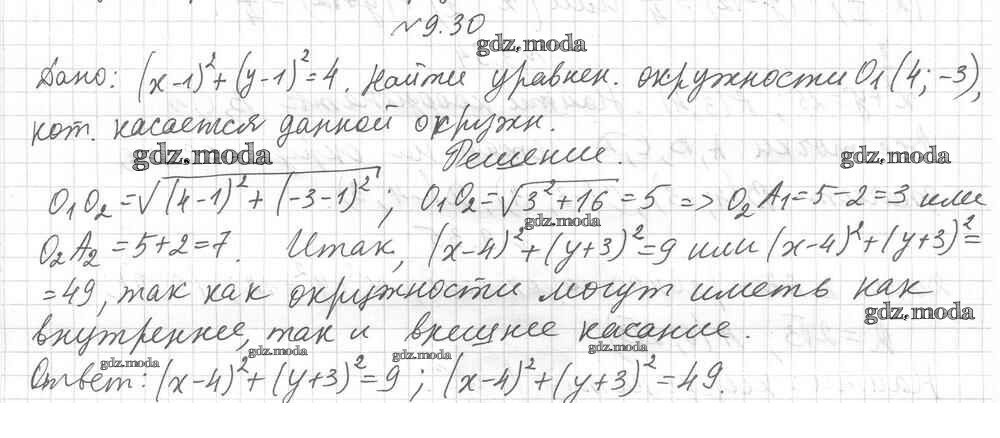 №9.30
gdz.moda
Дано: (x-1)²+(y-1)²=4. Найти уравнен. окружности O₁(4;-3),
кот. касается данной окружн.
gdz.moda Решение. gdz.moda
O₁O₂=√((4-1)²+(-3-1)²); O₁O₂=√(3²+16)=5 => O₂A₁=5-2=3 или
gdz.moda
O₂A₂=5+2=7. Итак, (x-4)²+(y+3)²=9 или (x-4)²+(y+3)²=
=49, так как окружности могут иметь как
gdz.moda
внутреннее, так и внешнее касание.
gdz.moda gdz.moda gdz.moda
Ответ: (x-4)²+(y+3)²=9; (x-4)²+(y+3)²=49.